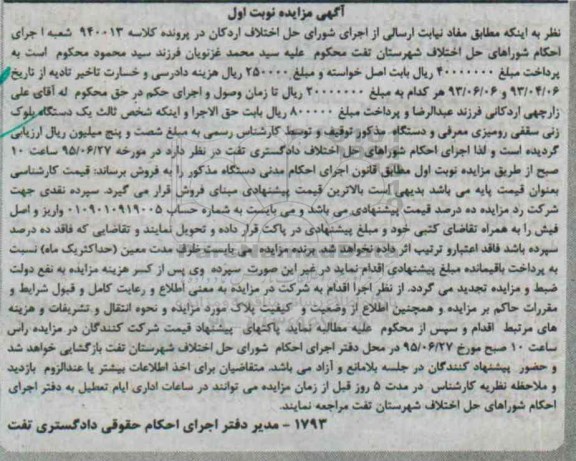 آگهی مزایده نوبت اول
نظر به اینکه مطابق مفاد نیابت ارسالی از اجرای شورای حل اختلاف اردکان در پرونده کلاسه ۹۴۰۰۱۳ شعبه ا جرای
احکام شوراهای حل اختلاف شهرستان تفت محکوم علیه سید محمد غزنویان فرزند سید محمود محکوم است به
پرداخت مبلغ ۴۰۰۰۰۰۰۰ ریال بابت اصل خواسته و مبلغ ۲۵۰۰۰۰ ریال هزینه دادرسی و خسارت تاخیر تادیه از تاریخ
۹۳/۰۴/۰۶ و ۹۳/۰۶/۰۶ هر کدام به مبلغ ۲۰۰۰۰۰۰۰ ریال تا زمان وصول و اجرای حکم در حق محکوم له آقای علی
زارچهی اردکانی فرزند عبدالرضا و پرداخت مبلغ ۸۰۰۰۰۰ ریال بابت حق الاجرا و اینکه شخص ثالث یک دستگاه بلوک
زنی سقفی رومیزی معرفی و دستگاه مذکور توقیف و توسط کارشناس رسمی به مبلغ شصت و پنج میلیون ریال ارزیابی
گردیده است و لذا اجرای احکام شوراهای حل اختلاف دادگستری تفت در نظر دارد در مورخه ۹۵/۰۶/۲۷ ساعت ۱۰
صبح از طریق مزایده نوبت اول مطابق قانون اجرای احکام مدنی دستگاه مذکور را به فروش برساند: قیمت کارشناسی
بعنوان قیمت پایه می باشد بدیهی است بالاترین قیمت پیشنهادی مبنای فروش قرار می گیرد. سپرده نقدی جهت
شرکت رد مزایده ده درصد قیمت پیشنهادی می باشد و می بایست به شماره حساب ۰۱۰۹۰۱۰۹۱۹۰۰۵ واریز و اصل
فیش را به همراه تقاضای کتبی خود و مبلغ پیشنهادی در پاکت قرار داده و تحویل نمایند و تقاضایی که فاقد ده درصد
سپرده باشد فاقد اعتبارو ترتیب اثر داده نخواهد شد. برنده مزایده می بایست ظرف مدت معین (حداکثریک ماه) نسبت
به پرداخت باقیمانده مبلغ پیشنهادی اقدام نماید در غیر این صورت سپرده وی پس از کسر هزینه مزایده به نفع دولت
ضبط و مزایده تجدید می گردد. از نظر اجرا اقدام به شرکت در مزایده به معنی اطلاع و رعایت کامل و قبول شرایط و
مقررات حاکم بر مزایده و همچنین اطلاع از وضعیت و کیفیت پلاک مورد مزایده و نحوه انتقال و تشریفات و هزینه
های مرتبط اقدام و سپس از محکوم علیه مطالبه نماید پاکتهای پیشنهاد قیمت شرکت کنندگان در مزایده راس
ساعت ۱۰ صبح مورخ ۹۵/۰۶/۲۷ در محل دفتر اجرای احکام شورای حل اختلاف شهرستان تفت بازگشایی خواهد شد
و حضور پیشنهاد کنندگان در جلسه بلامانع و آزاد می باشد. متقاضیان برای اخذ اطلاعات بیشتر یا عندالزوم بازدید
و ملاحظه نظریه کارشناس در مدت ۵ روز قبل از زمان مزایده می توانند در ساعات اداری ایام تعطیل به دفتر اجرای
احکام شوراهای حل اختلاف شهرستان تفت مراجعه نمایند.
۱۷۹۳ - مدیر دفتر اجرای احکام حقوقی دادگستری تفت